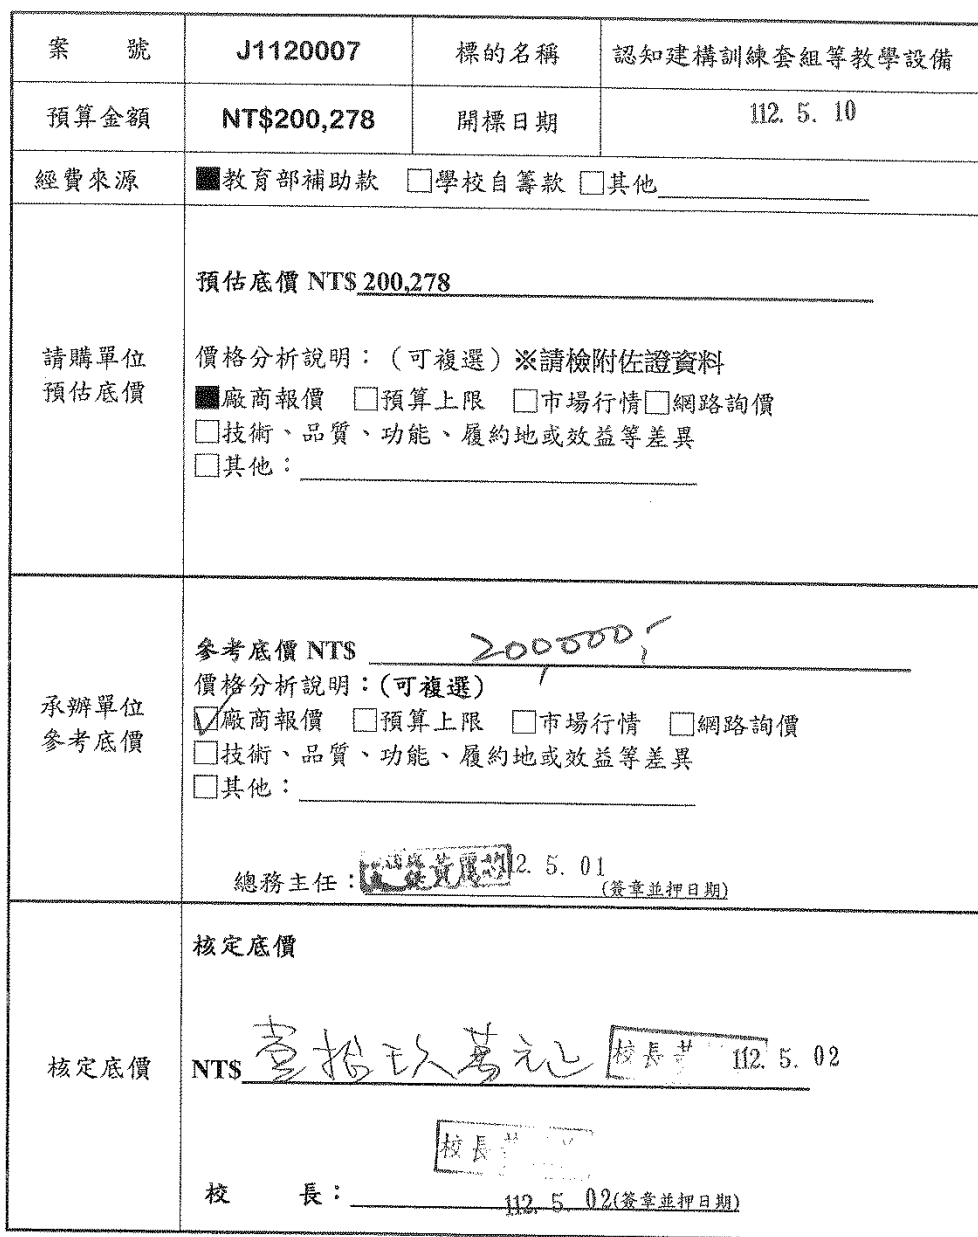 案 號 J1120007 標的名稱 認知建構訓練套組等教學設備
預算金額 NT$200,278 開標日期 112. 5. 10
經費來源 ■教育部補助款 □學校自籌款 □其他
請購單位
預估底價
預估底價 NT$ 200,278
價格分析說明：（可複選）※請檢附佐證資料
■廠商報價 □預算上限 □市場行情□網路詢價
□技術、品質、功能、履約地或效益等差異
□其他：
承辦單位
參考底價
參考底價 NT$ 200,000,-
價格分析說明：(可複選)
☑廠商報價 □預算上限 □市場行情 □網路詢價
□技術、品質、功能、履約地或效益等差異
□其他：
總務主任： 黃 12. 5. 01
(簽章並押日期)
核定底價
核定底價
NT$ 壹拾玖萬元正 校長 112. 5. 02
校長
校 長： 112. 5. 02(簽章並押日期)